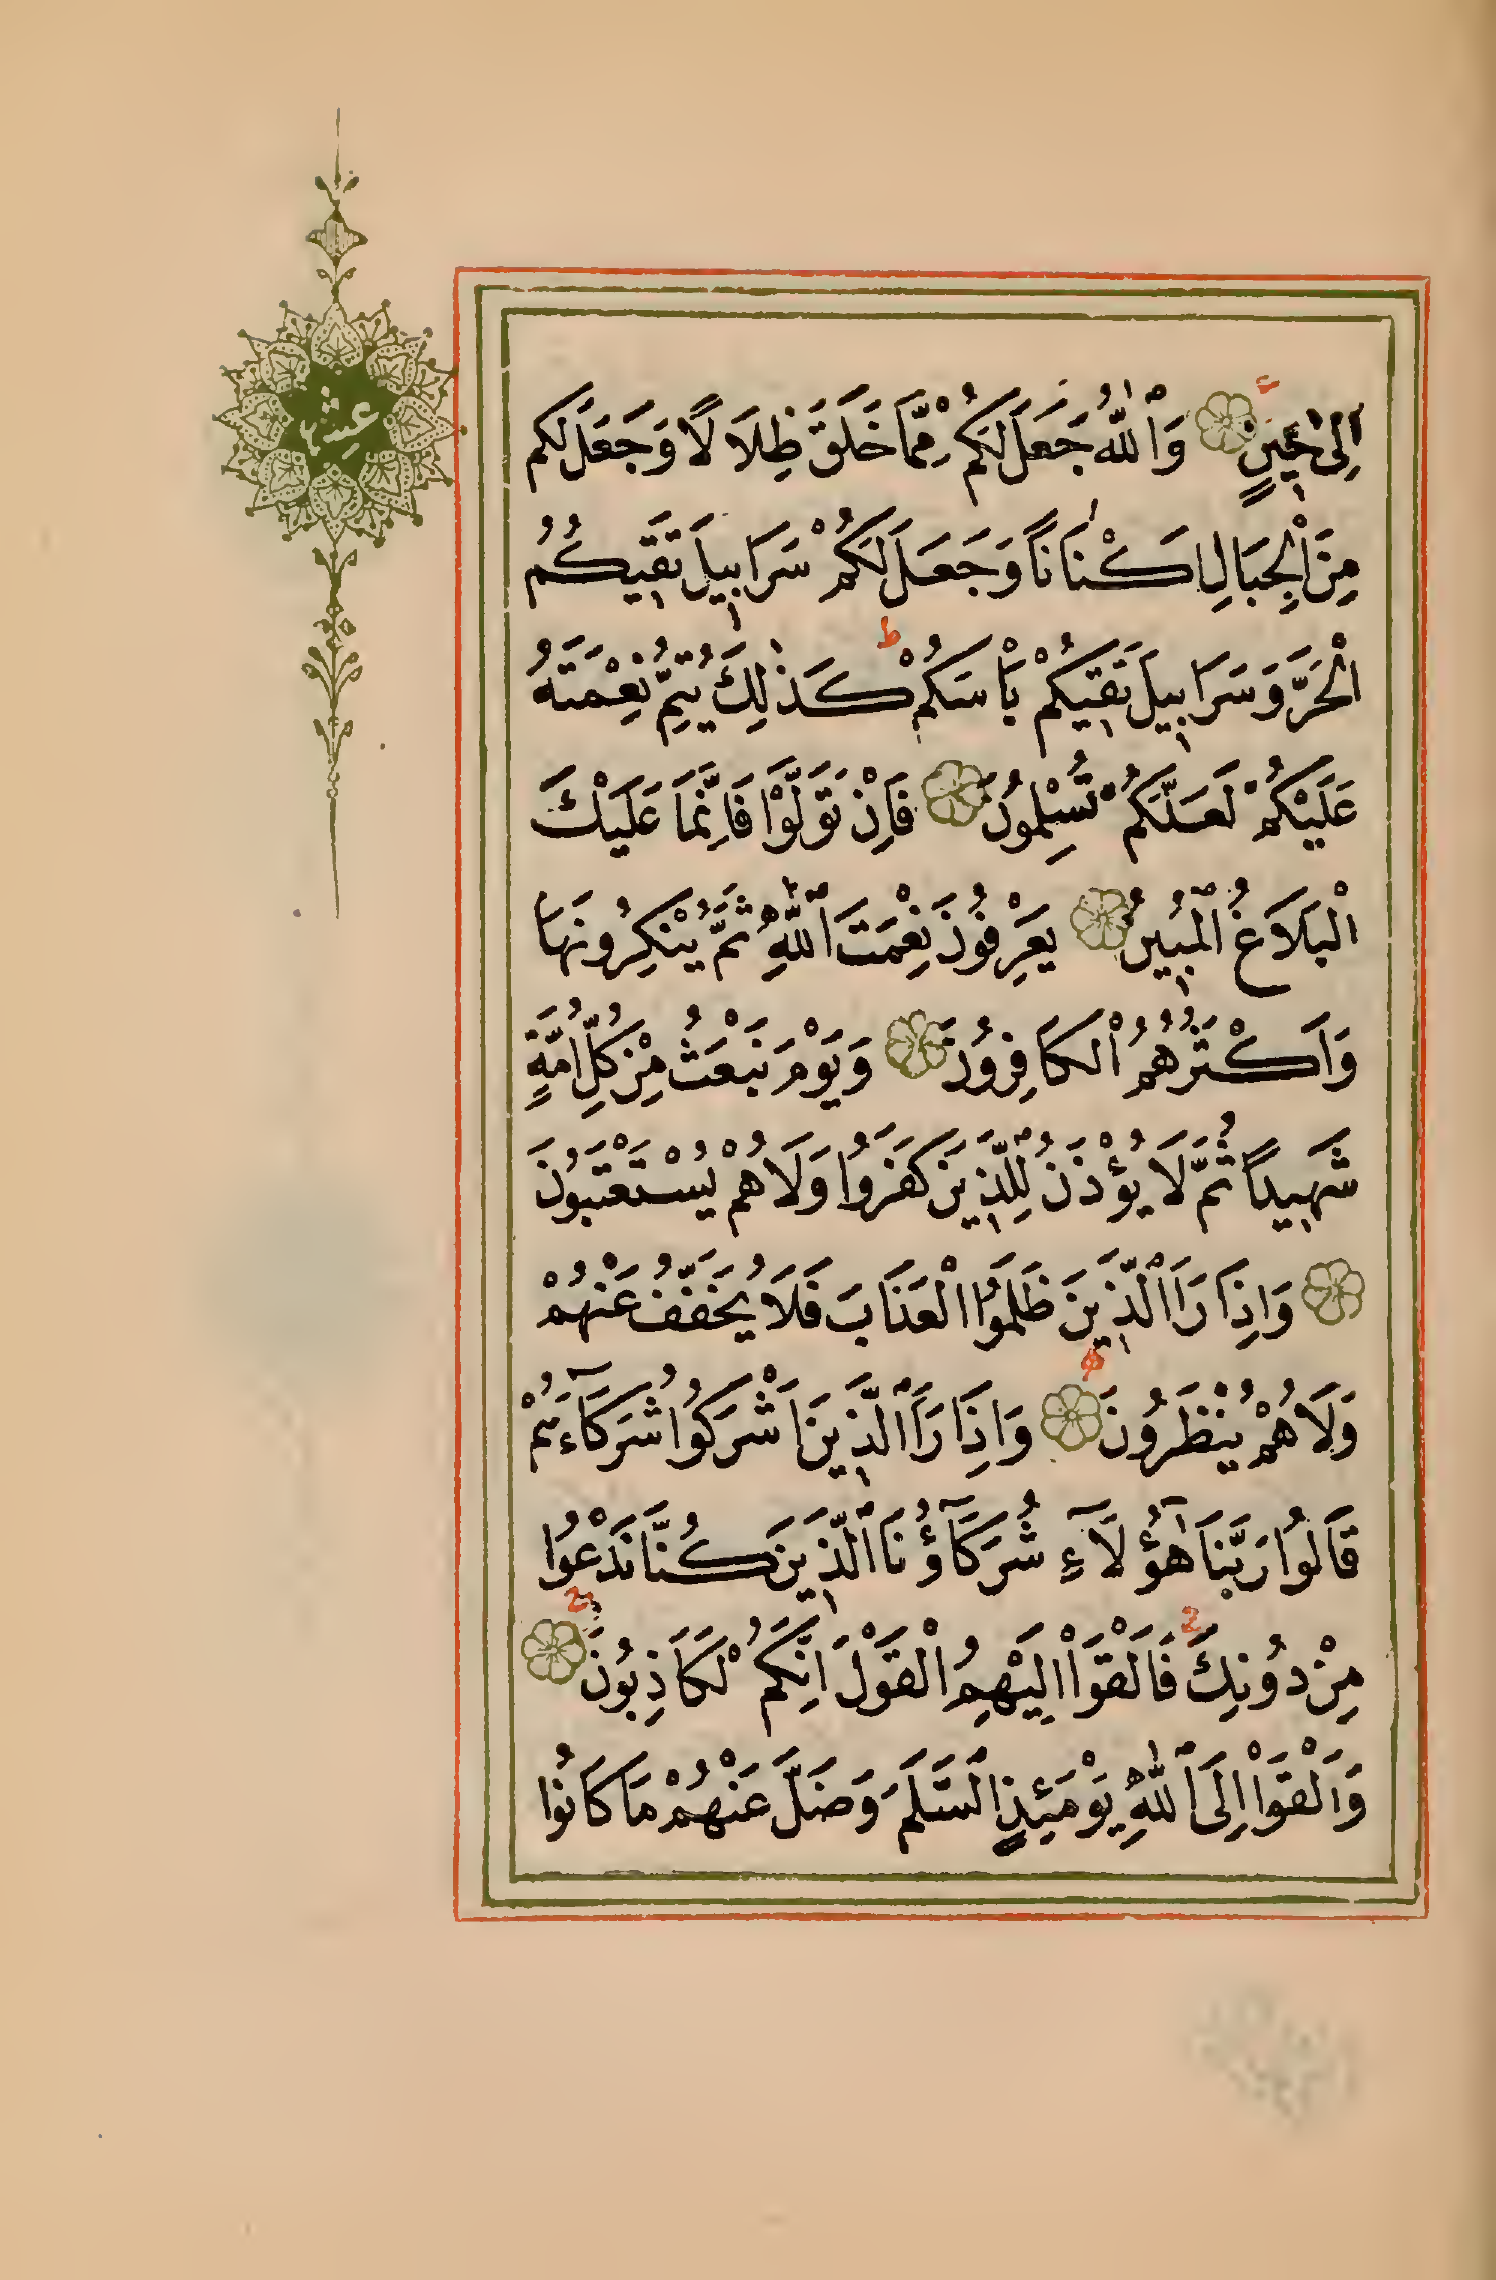 عشر
اِلٰى حٖينٍ وَاللّٰهُ جَعَلَ لَكُمْ مِمَّا خَلَقَ ظِلَالًا وَجَعَلَ لَكُم
مِنَ الْجِبَالِ اَكْنَانًا وَجَعَلَ لَكُمْ سَرَابٖيلَ تَقٖيكُمُ
الْحَرَّ وَسَرَابٖيلَ تَقٖيكُمْ بَاْسَكُمْ ط كَذٰلِكَ يُتِمُّ نِعْمَتَهُ
عَلَيْكُمْ لَعَلَّكُمْ تُسْلِمُونَ فَاِنْ تَوَلَّوْا فَاِنَّمَا عَلَيْكَ
الْبَلَاغُ الْمُبٖينُ يَعْرِفُونَ نِعْمَتَ اللّٰهِ ثُمَّ يُنْكِرُونَهَا
وَاَكْثَرُهُمُ الْكَافِرُونَ وَيَوْمَ نَبْعَثُ مِنْ كُلِّ اُمَّةٍ
شَهٖيدًا ثُمَّ لَا يُؤْذَنُ لِلَّذٖينَ كَفَرُوا وَلَا هُمْ يُسْتَعْتَبُونَ
وَاِذَا رَاَ الَّذٖينَ ظَلَمُوا الْعَذَابَ فَلَا يُخَفَّفُ عَنْهُمْ
وَلَا هُمْ يُنْظَرُونَ وَاِذَا رَاَ الَّذٖينَ اَشْرَكُوا شُرَكَآءَهُمْ
قَالُوا رَبَّنَا هٰٓؤُلَآءِ شُرَكَآؤُنَا الَّذٖينَ كُنَّا نَدْعُوا
مِنْ دُونِكَ فَاَلْقَوْا اِلَيْهِمُ الْقَوْلَ اِنَّكُمْ لَكَاذِبُونَ
وَاَلْقَوْا اِلَى اللّٰهِ يَوْمَئِذٍ السَّلَمَ وَضَلَّ عَنْهُمْ مَا كَانُوا